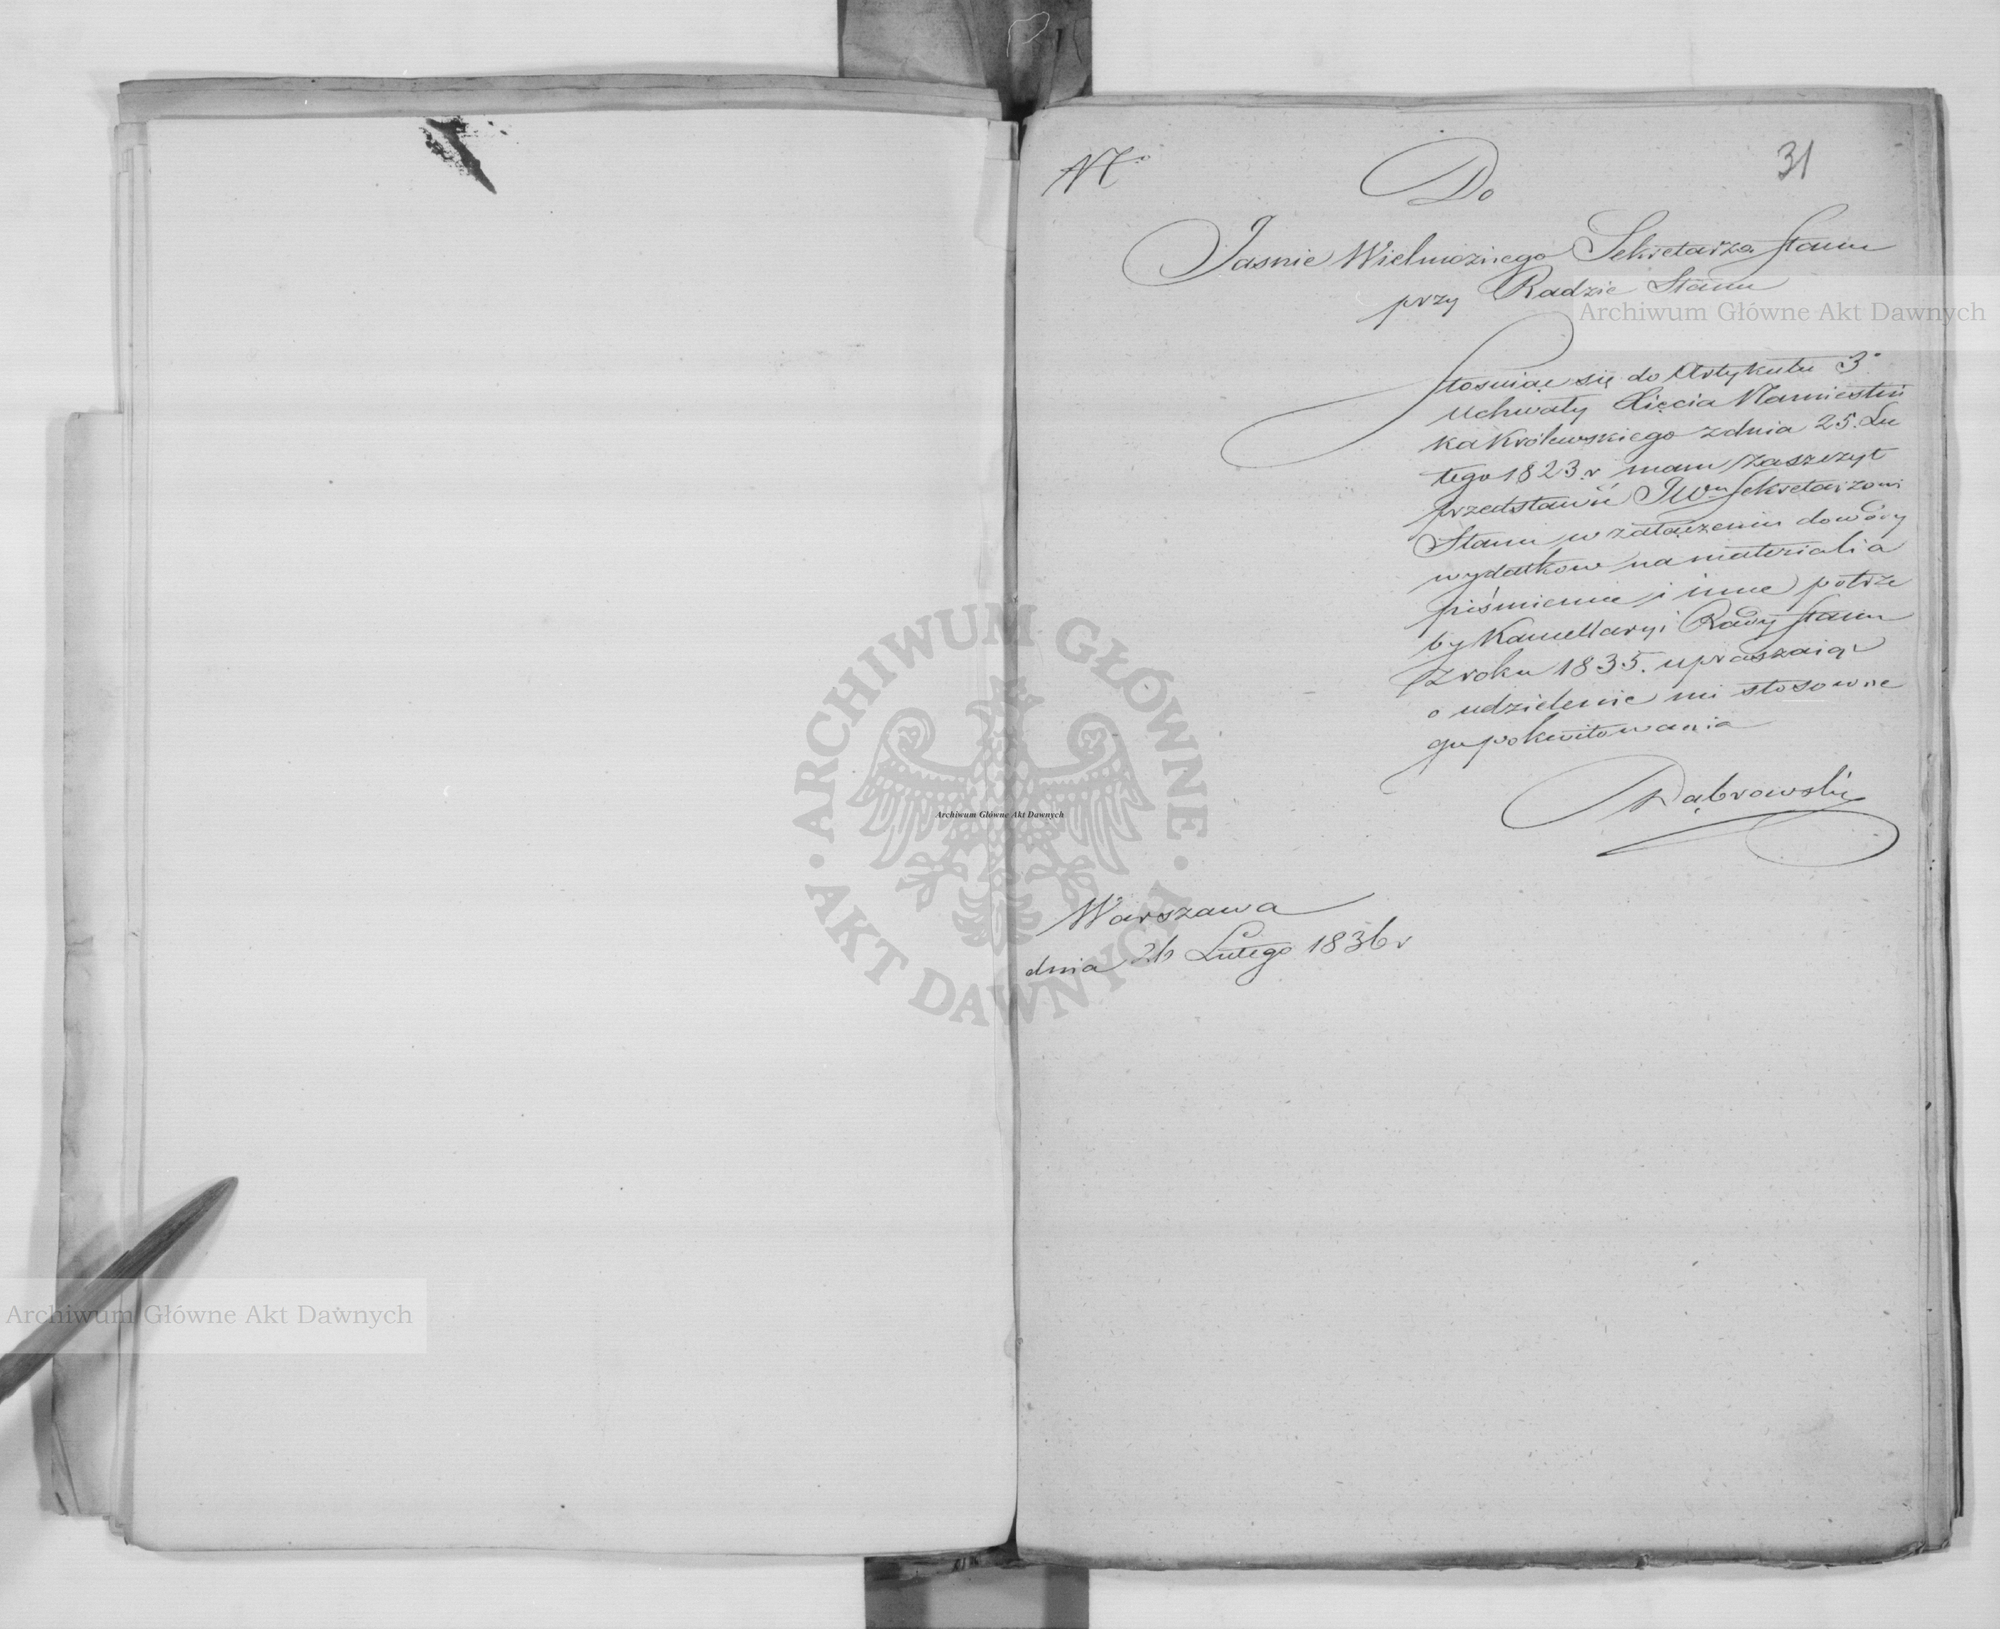 31
No
Do
Jasnie Wielmożnego Sekretarza Stanu
przy Radzie Stanu
Stosuiąc się do Artykułu 3º
Uchwały Xięcia Namiestni
ka Królewskiego z dnia 25. Lu
tego 1823 r mam zaszczyt
przedstawić JWmu Sekretarzowi
Stanu w załączeniu dowody
wydatkow na materialia
piśmienne i inne potrze
by Kancellaryi Rady Stanu
z roku 1835. upraszaiąc
o udzielenie mi stosowne
go pokwitowania
Dąbrowski
Warszawa
dnia 26 Lutego 1836 r
Archiwum Główne Akt Dawnych
ARCHIWUM GŁÓWNE
AKT DAWNYCH
Archiwum Główne Akt Dawnych
Archiwum Główne Akt Dawnych